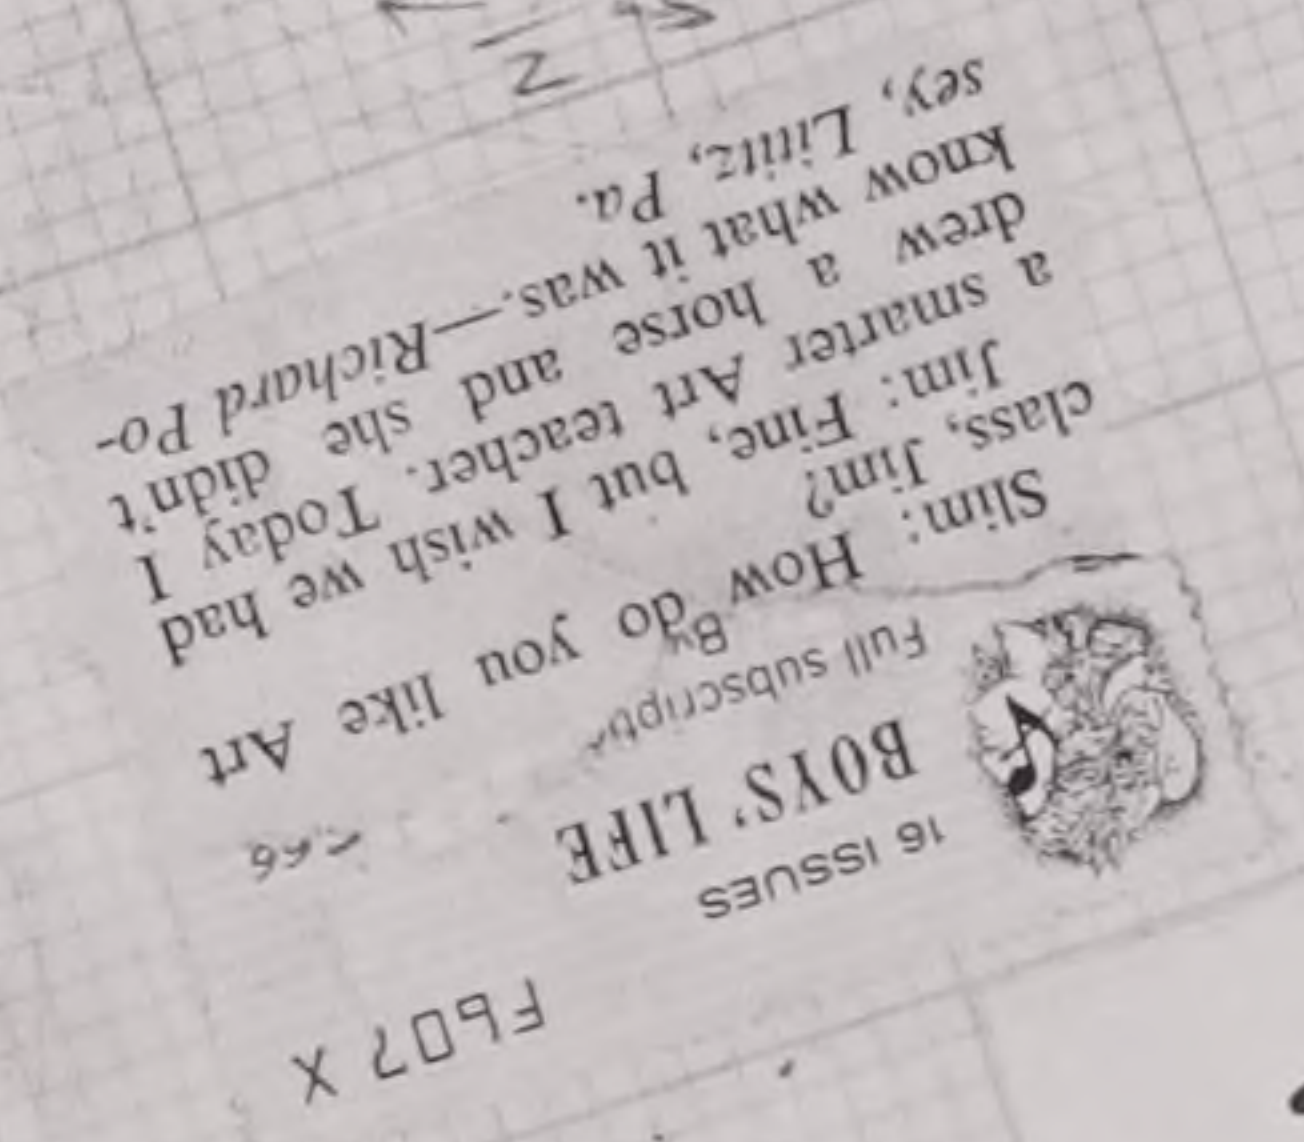 F607 X
16 ISSUES
BOYS' LIFE
Full subscripti
By
Slim: How do you like Art
class, Jim?
Jim: Fine, but I wish we had
a smarter Art teacher. Today I
drew a horse and she didn't
know what it was.—Richard Po-
sey, Lititz, Pa.